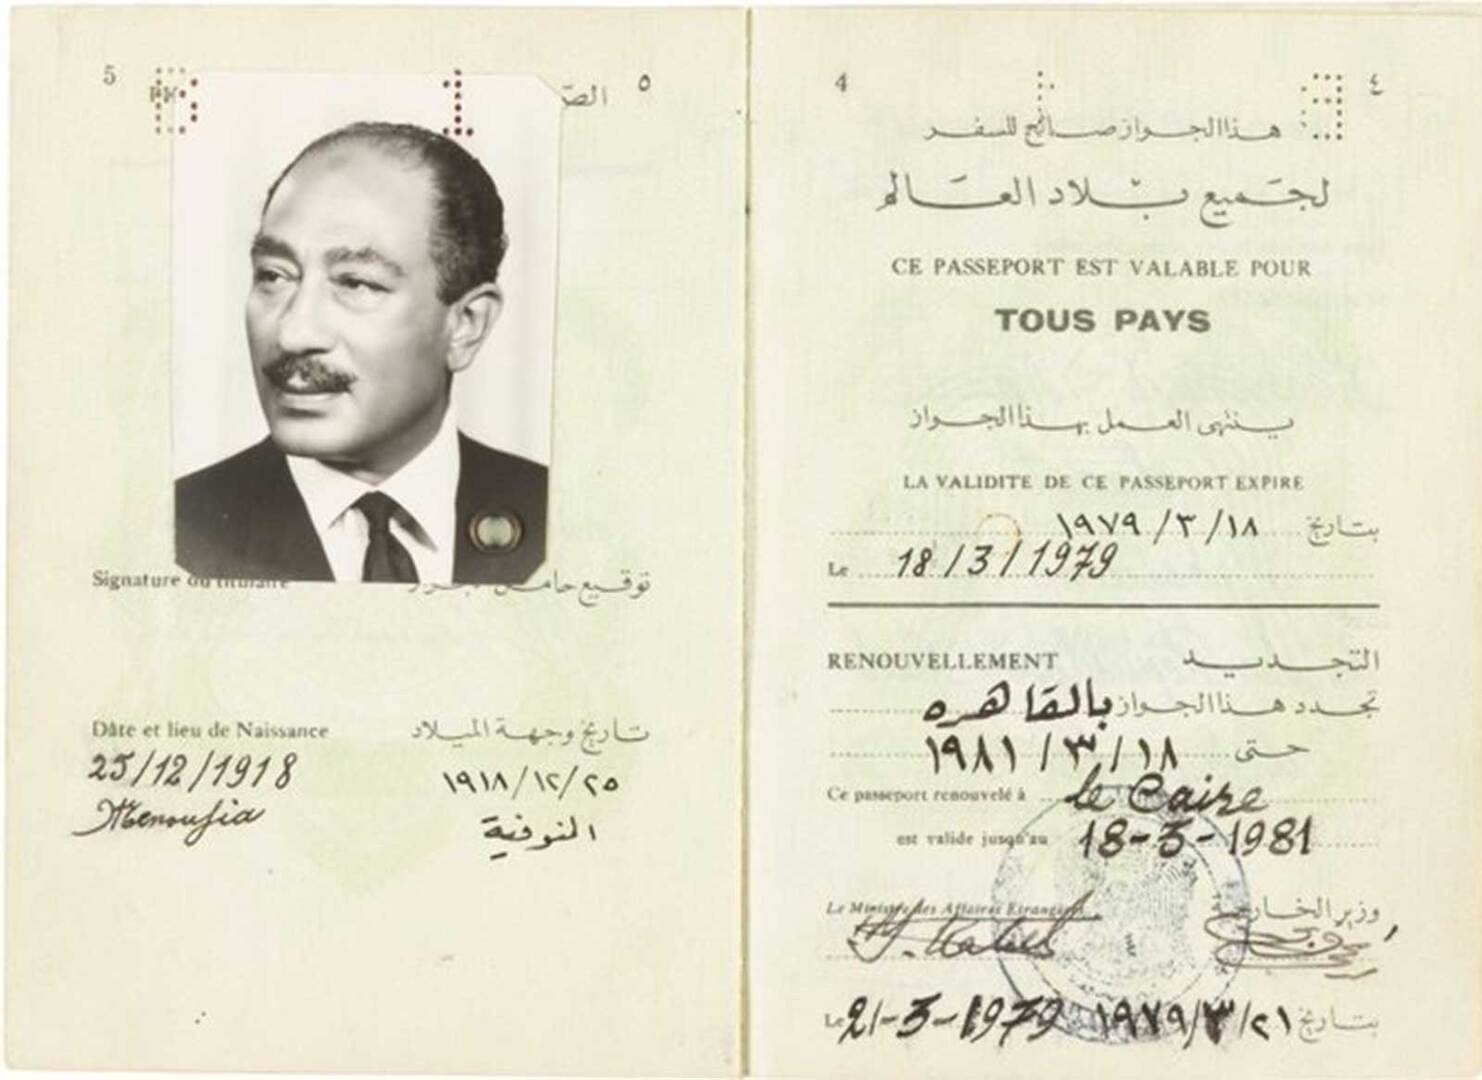 5
٥
الصـ
Signature du titulaire
توقيع حامل الجواز
Dâte et lieu de Naissance
تاريخ وجهة الميلاد
25/12/1918
١٩١٨/١٢/٢٥
Menoufia
المنوفية
4
٤
هذا الجواز صالح للسفر
لجميع بلاد العالم
CE PASSEPORT EST VALABLE POUR
TOUS PAYS
ينتهى العمل بهذا الجواز
LA VALIDITE DE CE PASSEPORT EXPIRE
بتاريخ ١٩٧٩/٣/١٨
Le 18/3/1979
RENOUVELLEMENT
التجديد
تجدد هذا الجواز بالقاهره
حتى ١٩٨١/٣/١٨
Ce passeport renouvelé à le Caire
est valide jusqu'au 18-3-1981
Le Ministre des Affaires Etrangères
وزير الخارجية
Le 21-3-1979
بتاريخ ١٩٧٩/٣/٢١